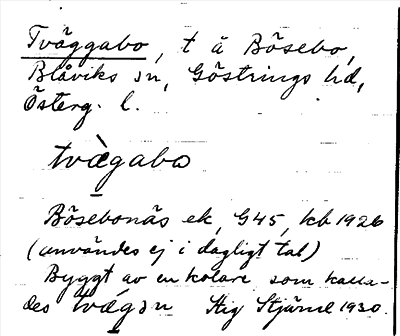 Tväggabo, t ä Bösebo,
Blåviks sn, Göstrings hd,
Österg. l.
tvàgabo
Bösebonäs ek, G45, kb 1926
(användes ej i dagligt tal)
Byggt av en kolare som kalla-
des tvágən Stig Stjärne 1930.